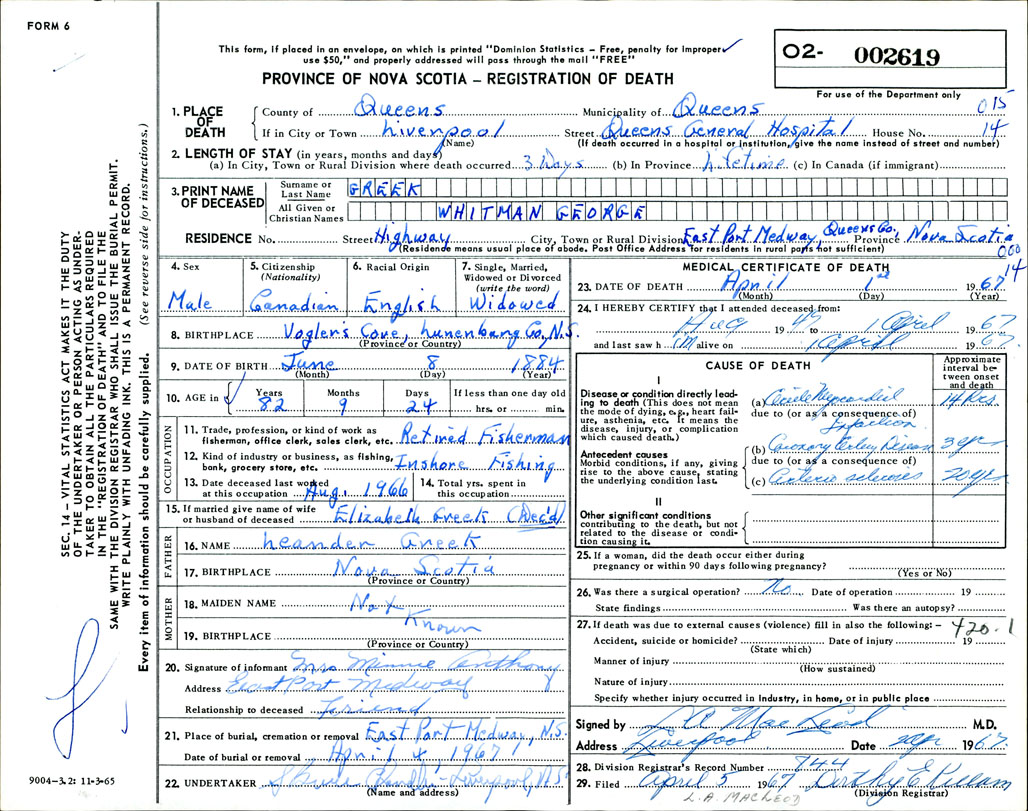 FORM 6
This form, if placed in an envelope, on which is printed "Dominion Statistics – Free, penalty for improper
use $50," and properly addressed will pass through the mail "FREE"
PROVINCE OF NOVA SCOTIA – REGISTRATION OF DEATH
O2- 002619
For use of the Department only
015
14
SEC. 14 – VITAL STATISTICS ACT MAKES IT THE DUTY
OF THE UNDERTAKER OR PERSON ACTING AS UNDER-
TAKER TO OBTAIN ALL THE PARTICULARS REQUIRED
IN THE "REGISTRATION OF DEATH" AND TO FILE THE
SAME WITH THE DIVISION REGISTRAR WHO SHALL ISSUE THE BURIAL PERMIT.
WRITE PLAINLY WITH UNFADING INK. THIS IS A PERMANENT RECORD.
Every item of information should be carefully supplied. (See reverse side for instructions.)
1. PLACE OF DEATH County of Queens Municipality of Queens
If in City or Town Liverpool Street Queens General Hospital House No.
(Name) (If death occurred in a hospital or institution, give the name instead of street and number)
2. LENGTH OF STAY (in years, months and days)
(a) In City, Town or Rural Division where death occurred 3 Days (b) In Province Lifetime (c) In Canada (if immigrant)
3. PRINT NAME OF DECEASED Surname or Last Name GREEK
All Given or Christian Names WHITMAN GEORGE
RESIDENCE No. Street Highway City, Town or Rural Division East Port Medway, Queens Co., Province Nova Scotia
(Residence means usual place of abode. Post Office Address for residents in rural parts not sufficient)
000
14
4. Sex Male
5. Citizenship (Nationality) Canadian
6. Racial Origin English
7. Single, Married, Widowed or Divorced (write the word) Widowed
8. BIRTHPLACE Vogler's Cove, Lunenburg Co., N.S.
(Province or Country)
9. DATE OF BIRTH June 8 1884
(Month) (Day) (Year)
10. AGE in Years 82 Months 9 Days 24 If less than one day old hrs. or min.
OCCUPATION
11. Trade, profession, or kind of work as fisherman, office clerk, sales clerk, etc. Retired Fisherman
12. Kind of industry or business, as fishing, bank, grocery store, etc. Inshore Fishing
13. Date deceased last worked at this occupation Aug. 1966 14. Total yrs. spent in this occupation
15. If married give name of wife or husband of deceased Elizabeth Greek (Dec'd)
FATHER
16. NAME Leander Greek
17. BIRTHPLACE Nova Scotia
(Province or Country)
MOTHER
18. MAIDEN NAME Not Known
19. BIRTHPLACE
(Province or Country)
20. Signature of informant Mrs Minnie Anthony
Address East Port Medway
Relationship to deceased Friend
21. Place of burial, cremation or removal East Port Medway, N.S.
Date of burial or removal April 4, 1967
22. UNDERTAKER Liverpool, N.S.
(Name and address)
9004-3.2: 11-3-65
MEDICAL CERTIFICATE OF DEATH
23. DATE OF DEATH April 1st 1967
(Month) (Day) (Year)
24. I HEREBY CERTIFY that I attended deceased from:
Aug 19 to 1 April 1967
and last saw him alive on 1 April 1967.
CAUSE OF DEATH
Approximate interval between onset and death
I
Disease or condition directly leading to death (This does not mean the mode of dying, e.g., heart failure, asthenia, etc. It means the disease, injury, or complication which caused death.)
(a) Acute Myocardial Infarction 14 hrs.
due to (or as a consequence of)
Antecedent causes
Morbid conditions, if any, giving rise to the above cause, stating the underlying condition last.
(b) Coronary Artery Disease 3 yr
due to (or as a consequence of)
(c) Arterio sclerosis 20 yr
II
Other significant conditions contributing to the death, but not related to the disease or condition causing it.
25. If a woman, did the death occur either during pregnancy or within 90 days following pregnancy?
(Yes or No)
26. Was there a surgical operation? No Date of operation 19
State findings Was there an autopsy?
27. If death was due to external causes (violence) fill in also the following: – 420.1
Accident, suicide or homicide? Date of injury 19
(State which)
Manner of injury
(How sustained)
Nature of injury
Specify whether injury occurred in Industry, in home, or in public place
Signed by L A MacLeod M.D.
Address Liverpool Date 2 Apr 1967.
28. Division Registrar's Record Number 744
29. Filed April 5 1967 Dorothy E Killam
(Division Registrar)
L.A. MACLEOD